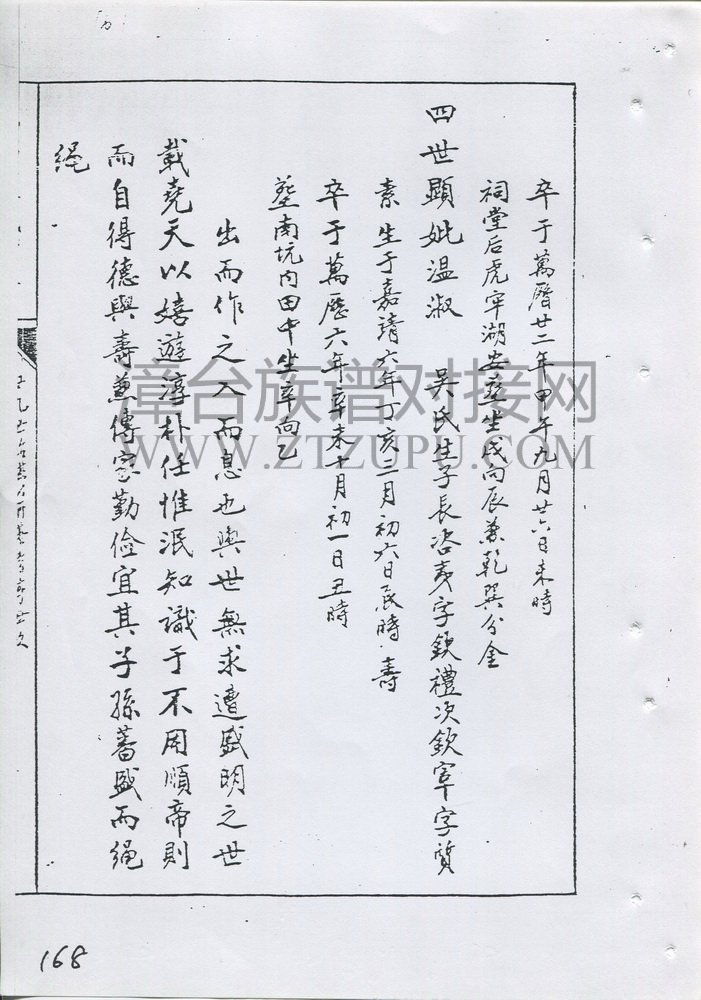 卒于萬曆廿二年甲午九月廿六日未時
祠堂后虎牢湖安塟坐戌向辰兼乾巽分金
四世顯妣温淑 吴氏生子長咨夷字欽禮次欽寧字質
素生于嘉靖六年丁亥三月初六日辰時 壽
卒于萬歷六年辛未十月初一日丑時
塟南坑内田中坐辛向乙
出而作之入而息也與世無求遭盛明之世
載堯天以嬉遊淳朴任惟泯知識于不用順帝則
而自得德與壽兼傳家勤儉宜其子孫蕃盛而绳
绳
章台族谱对接网
WWW.ZTZUPU.COM
168